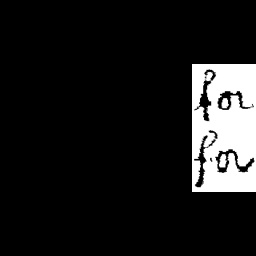 for
for